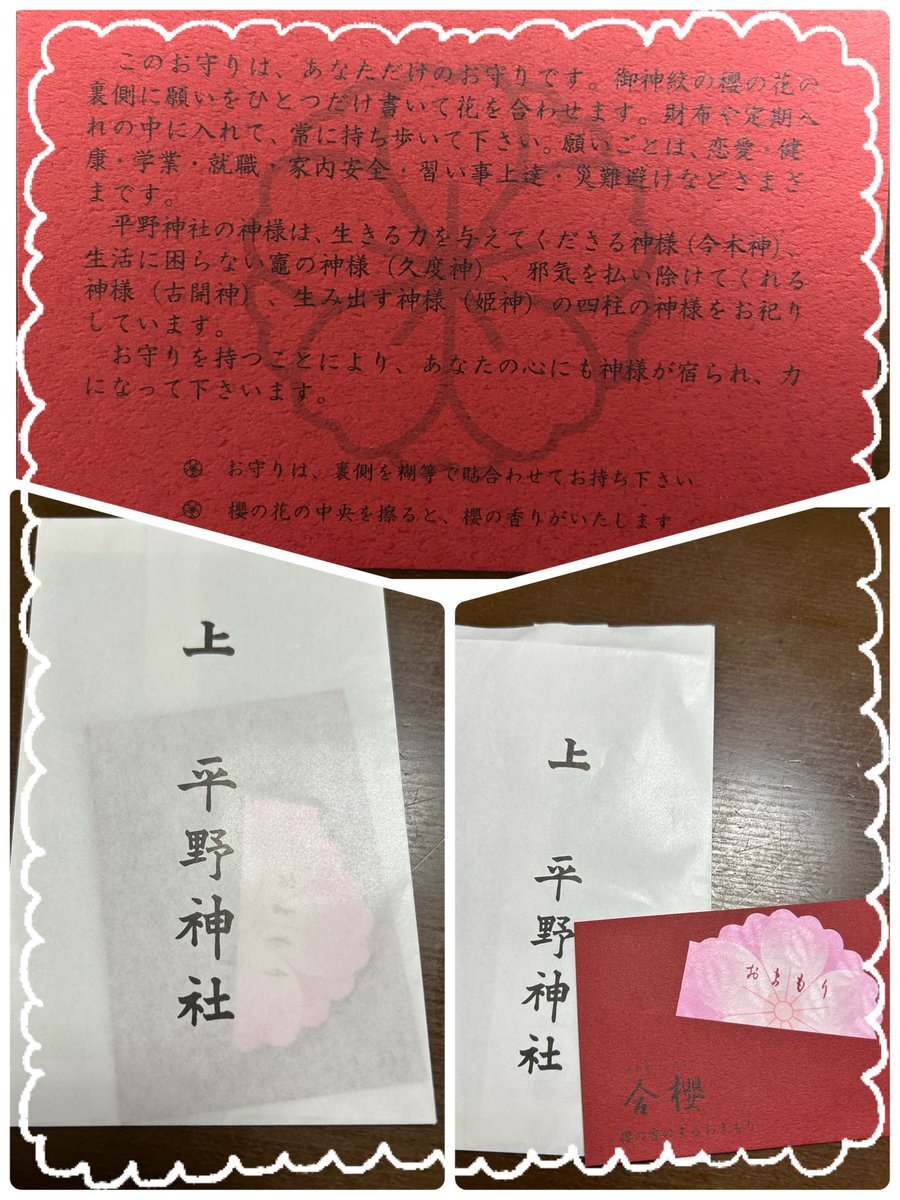 このお守りは、あなただけのお守りです。御神紋の櫻の花の
裏側に願いをひとつだけ書いて花を合わせます。財布や定期入
れの中に入れて、常に持ち歩いて下さい。願いごとは、恋愛・健
康・学業・就職・家内安全・習い事上達・災難避けなどさまざ
まです。
平野神社の神様は、生きる力を与えてくださる神様（今木神）、
生活に困らない竈の神様（久度神）、邪気を払い除けてくれる
神様（古開神）、生み出す神様（姫神）の四柱の神様をお祀り
しています。
お守りを持つことにより、あなたの心にも神様が宿られ、力
になって下さいます。
お守りは、裏側を糊等で貼合わせてお持ち下さい
櫻の花の中央を擦ると、櫻の香りがいたします
上
平野神社
上
平野神社
おまもり
合櫻
櫻の香のするおまもり